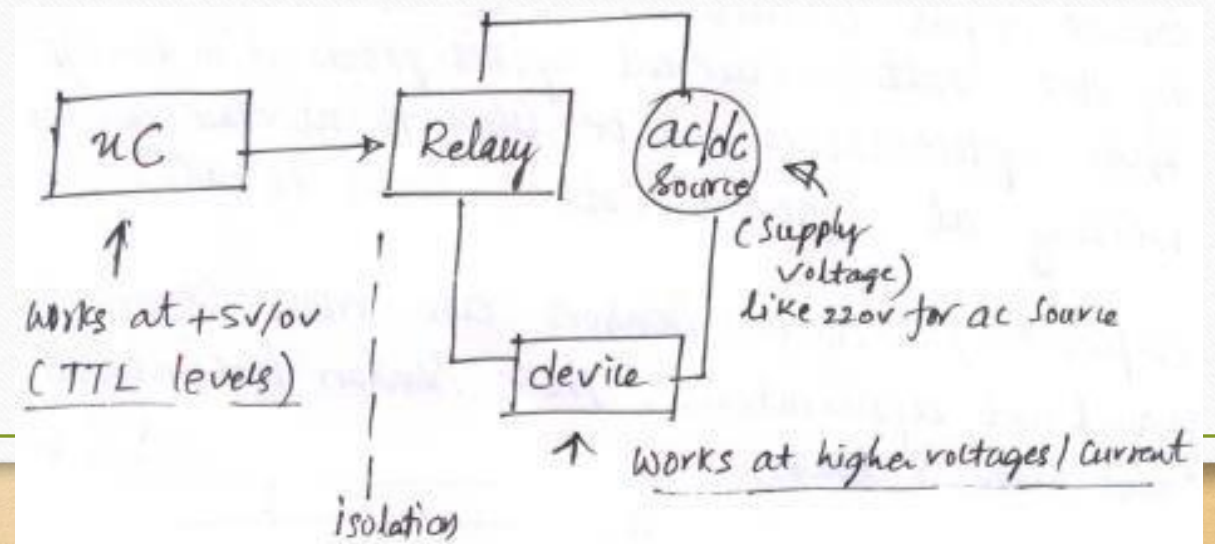 uC
Relay
ac/dc
source
(supply
voltage)
like 220v for ac source
works at +5v/0v
(TTL levels)
device
works at higher voltages/current
isolation